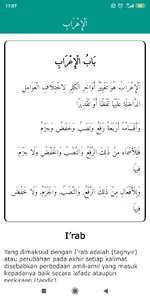 11:07
اَلْإِعْرَابُ
بَابُ الْإِعْرَابِ
اَلْإِعْرَابُ هُوَ تَغْيِيْرُ أَوَاخِرِ الْكَلِمِ لِاخْتِلَافِ الْعَوَامِلِ
الدَّاخِلَةِ عَلَيْهَا لَفْظًا أَوْ تَقْدِيْرًا
وَأَقْسَامُهُ أَرْبَعَةٌ رَفْعٌ وَنَصْبٌ وَخَفْضٌ وَجَزْمٌ
فَلِلْأَسْمَاءِ مِنْ ذَلِكَ الرَّفْعُ، وَالنَّصْبُ، وَالْخَفْضُ، وَلَا جَزْمَ
فِيْهَا
وَلِلْأَفْعَالِ مِنْ ذَلِكَ الرَّفْعُ، وَالنَّصْبُ، وَالْجَزْمُ، وَلَا خَفْضَ
فِيْهَا
I'rab
Yang dimaksud dengan I'rab adalah (taghyir)
atau perubahan pada akhir setiap kalimat
disebabkan perbedaan amil-amil yang masuk
kepadanya baik secara lafadz ataupun
perkiraan (taqdir).